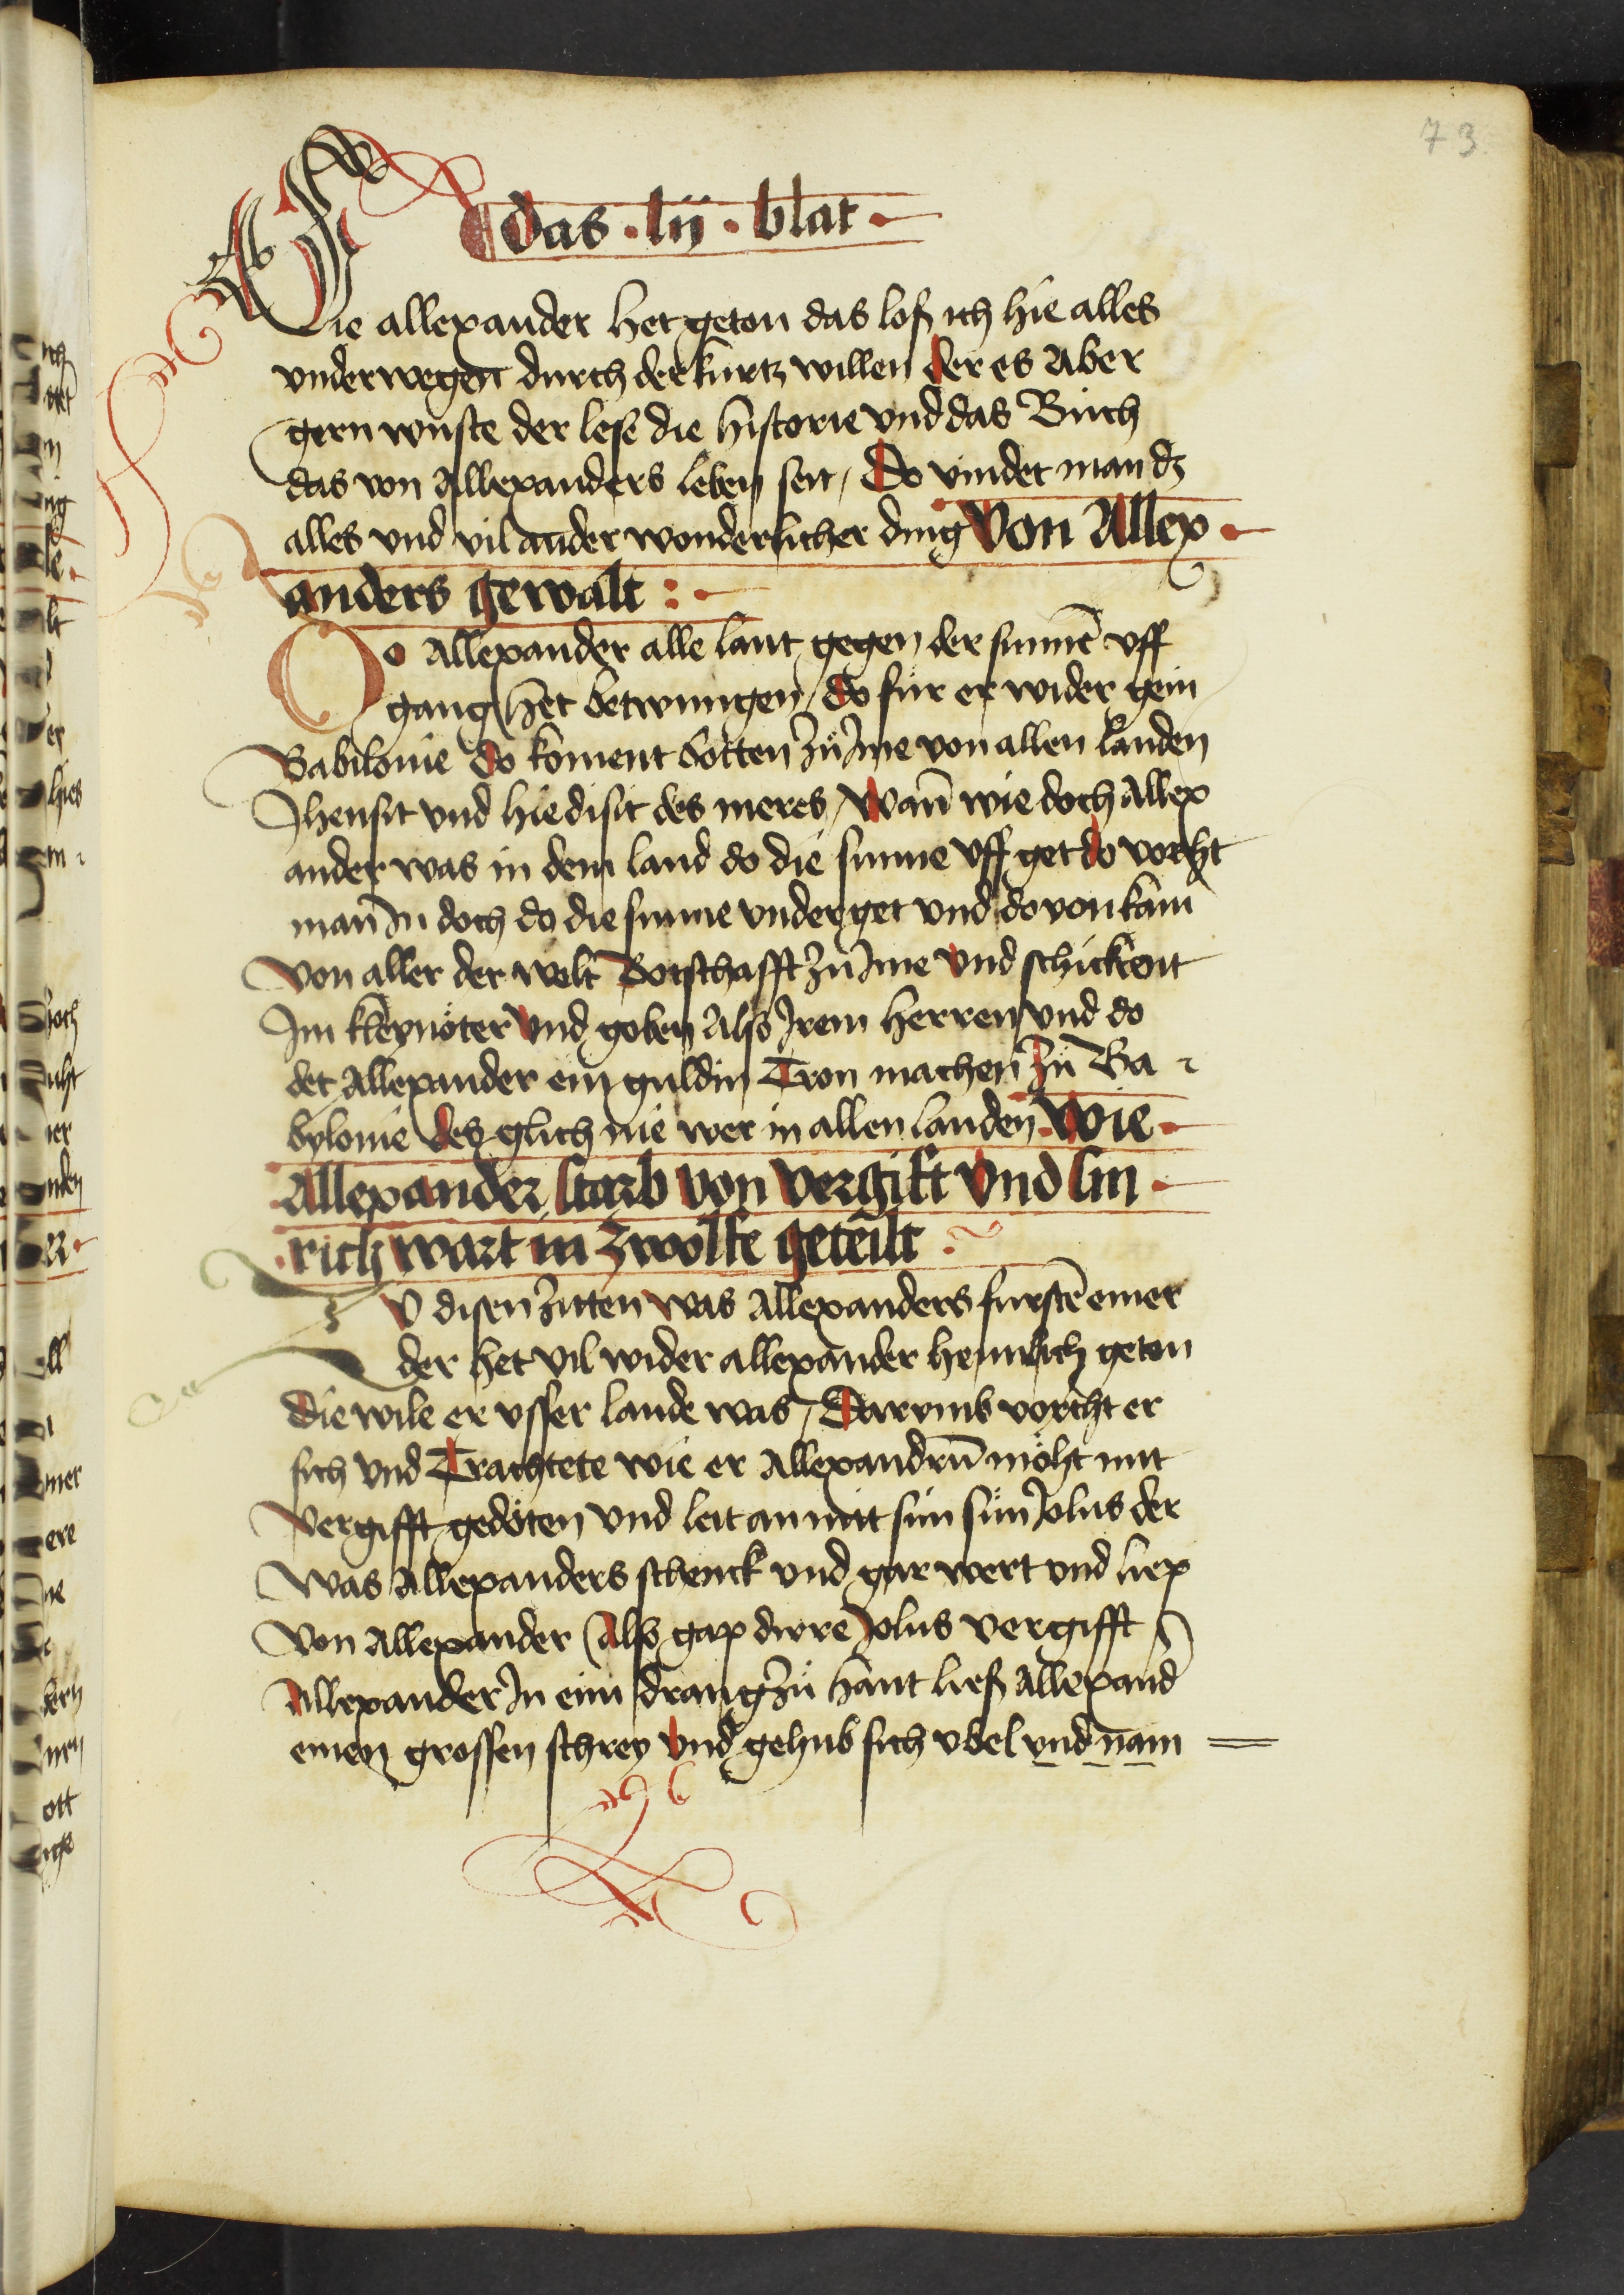 73
das · lij · blat ·
Wie allexander het geton das loß ich hie alles
vnderwegen durch der kurtz willen der es Aber
gern wuste der lese die historie vnd das Buͦch
das von Allexanders leben seit / Do vindet man dz
alles vnd vil ander wonderlicher ding Von Allex ·
anders gewalt : ·
Do Allexander alle lant gegen der sunnē vff
gang het betwungen / do fuͦr er wider gein
Babilonie do koment botten zuͦ Jme von allen landen
Jhensit vnd hiedisit des meres / Wann̄ wie doch Allex
ander was in dem land do die sunne vff get do vorcht
man Jn doch do die sunne vnder get vnd do von kam
von aller der welt Botschafft zuͦ Jme vnd schickent
Jm kleynöter vnd goben Als Jrem herren vnd do
det Allexander ein guldin Tron machen zuͦ Ba
bylonie des glich nie wer in allen landen · Wie ·
Allexander starb von vergift vnd sin ·
· rich wart in zwölfe geteilt ·
ZV disen zitten was Allexanders furstē einer
der het vil wider allexander heimlich geton
die wile er vsser lande was / Darvmb vorcht er
sich vnd Trachtete wie er Allexandrū möht mit
vergifft gedöten vnd leit an mit sim sun Jolus der
was Allexanders schenck vnd gar wert vnd liep
von Allexander / Als gap dirre Jolus vergifft
Allexander Jn eim drang zuͦ hant ließ Allexand
einen grossen schrey vnd gehub sich vbel vnd nam =